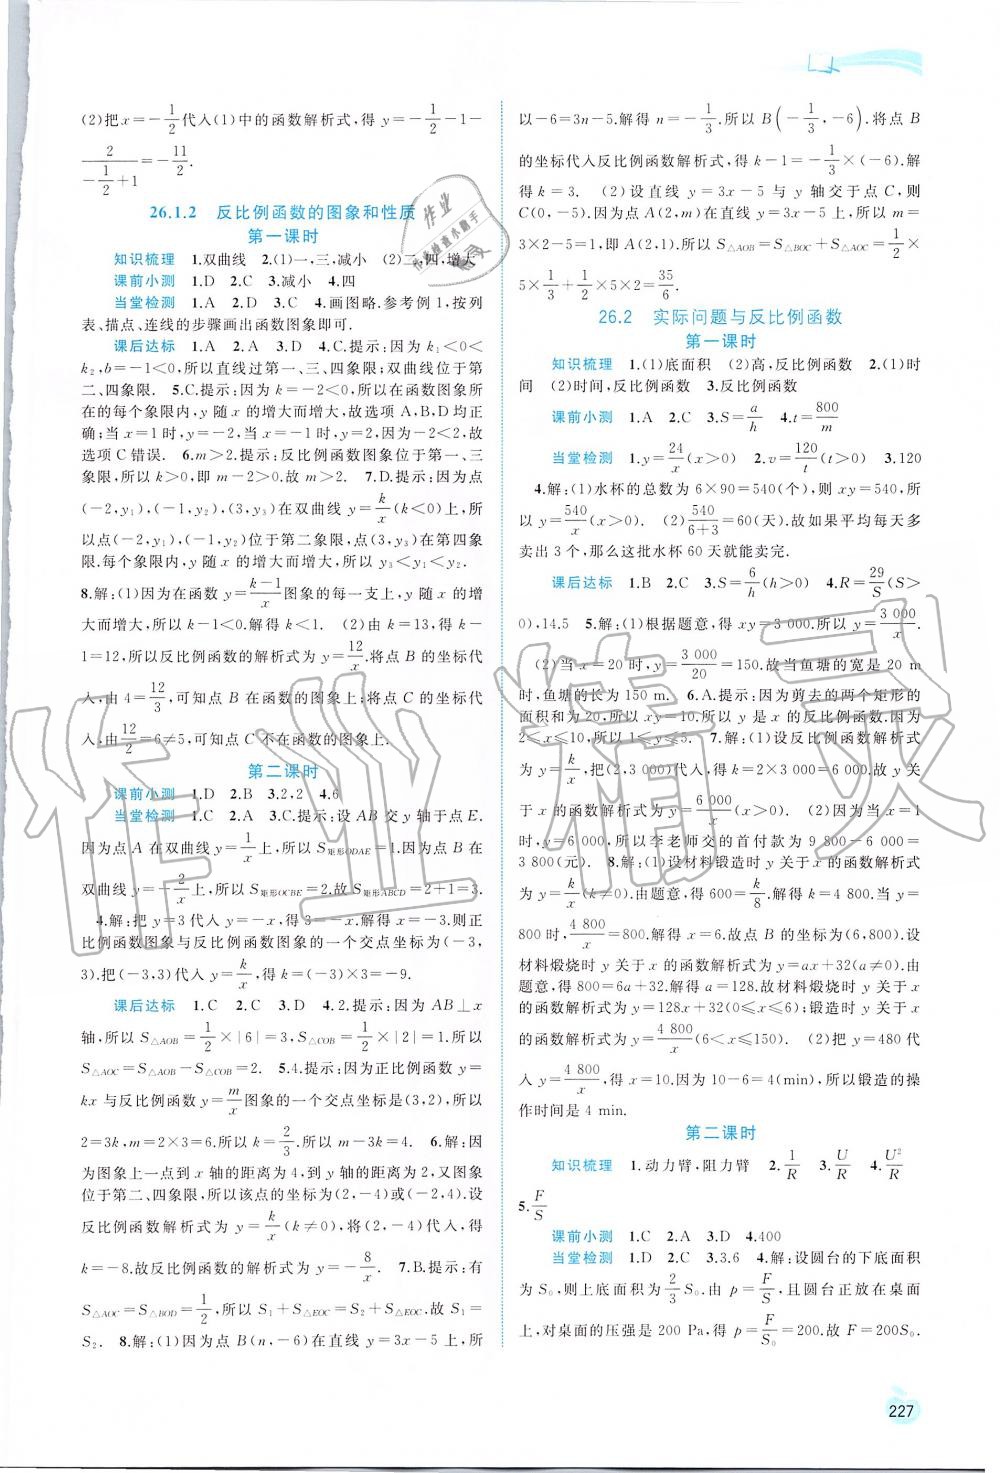 (2)把x=-1/2代入(1)中的函数解析式,得y=-1/2-1-
2/(-1/2+1)=-11/2.
26.1.2 反比例函数的图象和性质
第一课时
知识梳理 1.双曲线 2.(1)一,三,减小 (2)二,四,增大
课前小测 1.D 2.C 3.减小 4.四
当堂检测 1.A 2.D 3.C 4.画图略.参考例1,按列
表、描点、连线的步骤画出函数图象即可.
课后达标 1.A 2.A 3.D 4.C.提示:因为k₁<0<
k₂,b=-1<0,所以直线过第二、三、四象限;双曲线位于第
二、四象限. 5.C.提示:因为k=-2<0,所以在函数图象所
在的每个象限内,y随x的增大而增大,故选项A,B,D均正
确;当x=1时,y=-2,当x=-1时,y=2,因为-2<2,故
选项C错误. 6.m>2.提示:反比例函数图象位于第一、三
象限,所以m-2>0.故m>2. 7.D.提示:因为点
(-2,y₁),(-1,y₂),(3,y₃)在双曲线y=k/x(k<0)上,所
以点(-2,y₁),(-1,y₂)位于第二象限,点(3,y₃)在第四象
限.每个象限内,y随x的增大而增大,所以y₃<y₁<y₂.
8.解:(1)因为在函数y=(k-1)/x图象的每一支上,y随x的增
大而增大,所以k-1<0.解得k<1. (2)由k=13,得k-
1=12,所以反比例函数的解析式为y=12/x.将点B的坐标代
入,由4=12/3,可知点B在函数的图象上;将点C的坐标代
入,由12/2=6≠5,可知点C不在函数的图象上.
第二课时
课前小测 1.D 2.B 3.2,2 4.6
当堂检测 1.C 2.A 3.C.提示:设AB交y轴于点E.
因为点A在双曲线y=1/x上,所以S矩形ODAE=1.因为点B在
双曲线y=-2/x上,所以S矩形OCBE=2.故S矩形ABCD=2+1=3.
4.解:把y=3代入y=-x,得-x=3.解得x=-3.则正
比例函数图象与反比例函数图象的一个交点坐标为(-3,
3).把(-3,3)代入y=k/x,得k=(-3)×3=-9.
课后达标 1.C 2.C 3.D 4.2.提示:因为AB⊥x
轴,所以S△AOB=1/2×|6|=3,S△COB=1/2×|2|=1.所以
S△AOC=S△AOB-S△COB=2. 5.4.提示:因为正比例函数y=
kx与反比例函数y=m/x图象的一个交点坐标是(3,2),所以
2=3k,m=2×3=6.所以k=2/3.所以m-3k=4. 6.解:因
为图象上一点到x轴的距离为4,到y轴的距离为2,又图象
位于第二、四象限,所以该点的坐标为(2,-4)或(-2,4).设
反比例函数解析式为y=k/x(k≠0),将(2,-4)代入得
k=-8.故反比例函数的解析式为y=-8/x. 7.B.提示:由于
S△AOC=S△BOD=1/2,所以S₁+S△EOC=S₂+S△EOC.故S₁=
S₂. 8.解:(1)因为点B(n,-6)在直线y=3x-5上,所
以-6=3n-5.解得n=-1/3.所以B(-1/3,-6).将点B
的坐标代入反比例函数解析式,得k-1=-1/3×(-6).解
得k=3. (2)设直线y=3x-5与y轴交于点C,则
C(0,-5).因为点A(2,m)在直线y=3x-5上,所以m=
3×2-5=1,即A(2,1).所以S△AOB=S△BOC+S△AOC=1/2×
5×1/3+1/2×5×2=35/6.
26.2 实际问题与反比例函数
第一课时
知识梳理 1.(1)底面积 (2)高,反比例函数 2.(1)时
间 (2)时间,反比例函数 3.反比例函数
课前小测 1.A 2.C 3.S=a/h 4.t=800/m
当堂检测 1.y=24/x(x>0) 2.v=120/t(t>0) 3.120
4.解:(1)水杯的总数为6×90=540(个),则xy=540,所
以y=540/x(x>0). (2)540/(6+3)=60(天).故如果平均每天多
卖出3个,那么这批水杯60天就能卖完.
课后达标 1.B 2.C 3.S=6/h(h>0) 4.R=29/S(S>
0),14.5 5.解:(1)根据题意,得xy=3 000,所以y=3 000/x.
(2)当x=20时,y=3 000/20=150.故当鱼塘的宽是20 m
时,鱼塘的长为150 m. 6.A.提示:因为剪去的两个矩形的
面积和为20,所以xy=10.所以y是x的反比例函数.因为
2≤x≤10,所以1≤y≤5. 7.解:(1)设反比例函数解析式
为y=k/x,把(2,3 000)代入,得k=2×3 000=6 000,故y关
于x的函数解析式为y=6 000/x(x>0). (2)因为当x=1
时,y=6 000,所以李老师交的首付款为9 800-6 000=
3 800(元). 8.解:(1)设材料锻造时y关于x的函数解析式
为y=k/x(k≠0).由题意,得600=k/8.解得k=4 800.当y=
800时,4 800/x=800.解得x=6.故点B的坐标为(6,800).设
材料煅烧时y关于x的函数解析式为y=ax+32(a≠0).由
题意,得800=6a+32.解得a=128.故材料煅烧时y关于x
的函数解析式为y=128x+32(0≤x≤6);锻造时y关于x
的函数解析式为y=4 800/x(6<x≤150). (2)把y=480代
入y=4 800/x,得x=10.因为10-6=4(min),所以锻造的操
作时间是4 min.
第二课时
知识梳理 1.动力臂,阻力臂 2.1/R 3.U/R 4.U²/R
5.F/S
课前小测 1.C 2.A 3.D 4.400
当堂检测 1.D 2.C 3.3.6 4.解:设圆台的下底面积
为S₀,则上底面积为2/3S₀.由p=F/S,且圆台正放在桌面
上,对桌面的压强是200 Pa,得p=F/S₀=200.故F=200S₀.
227
作业精灵